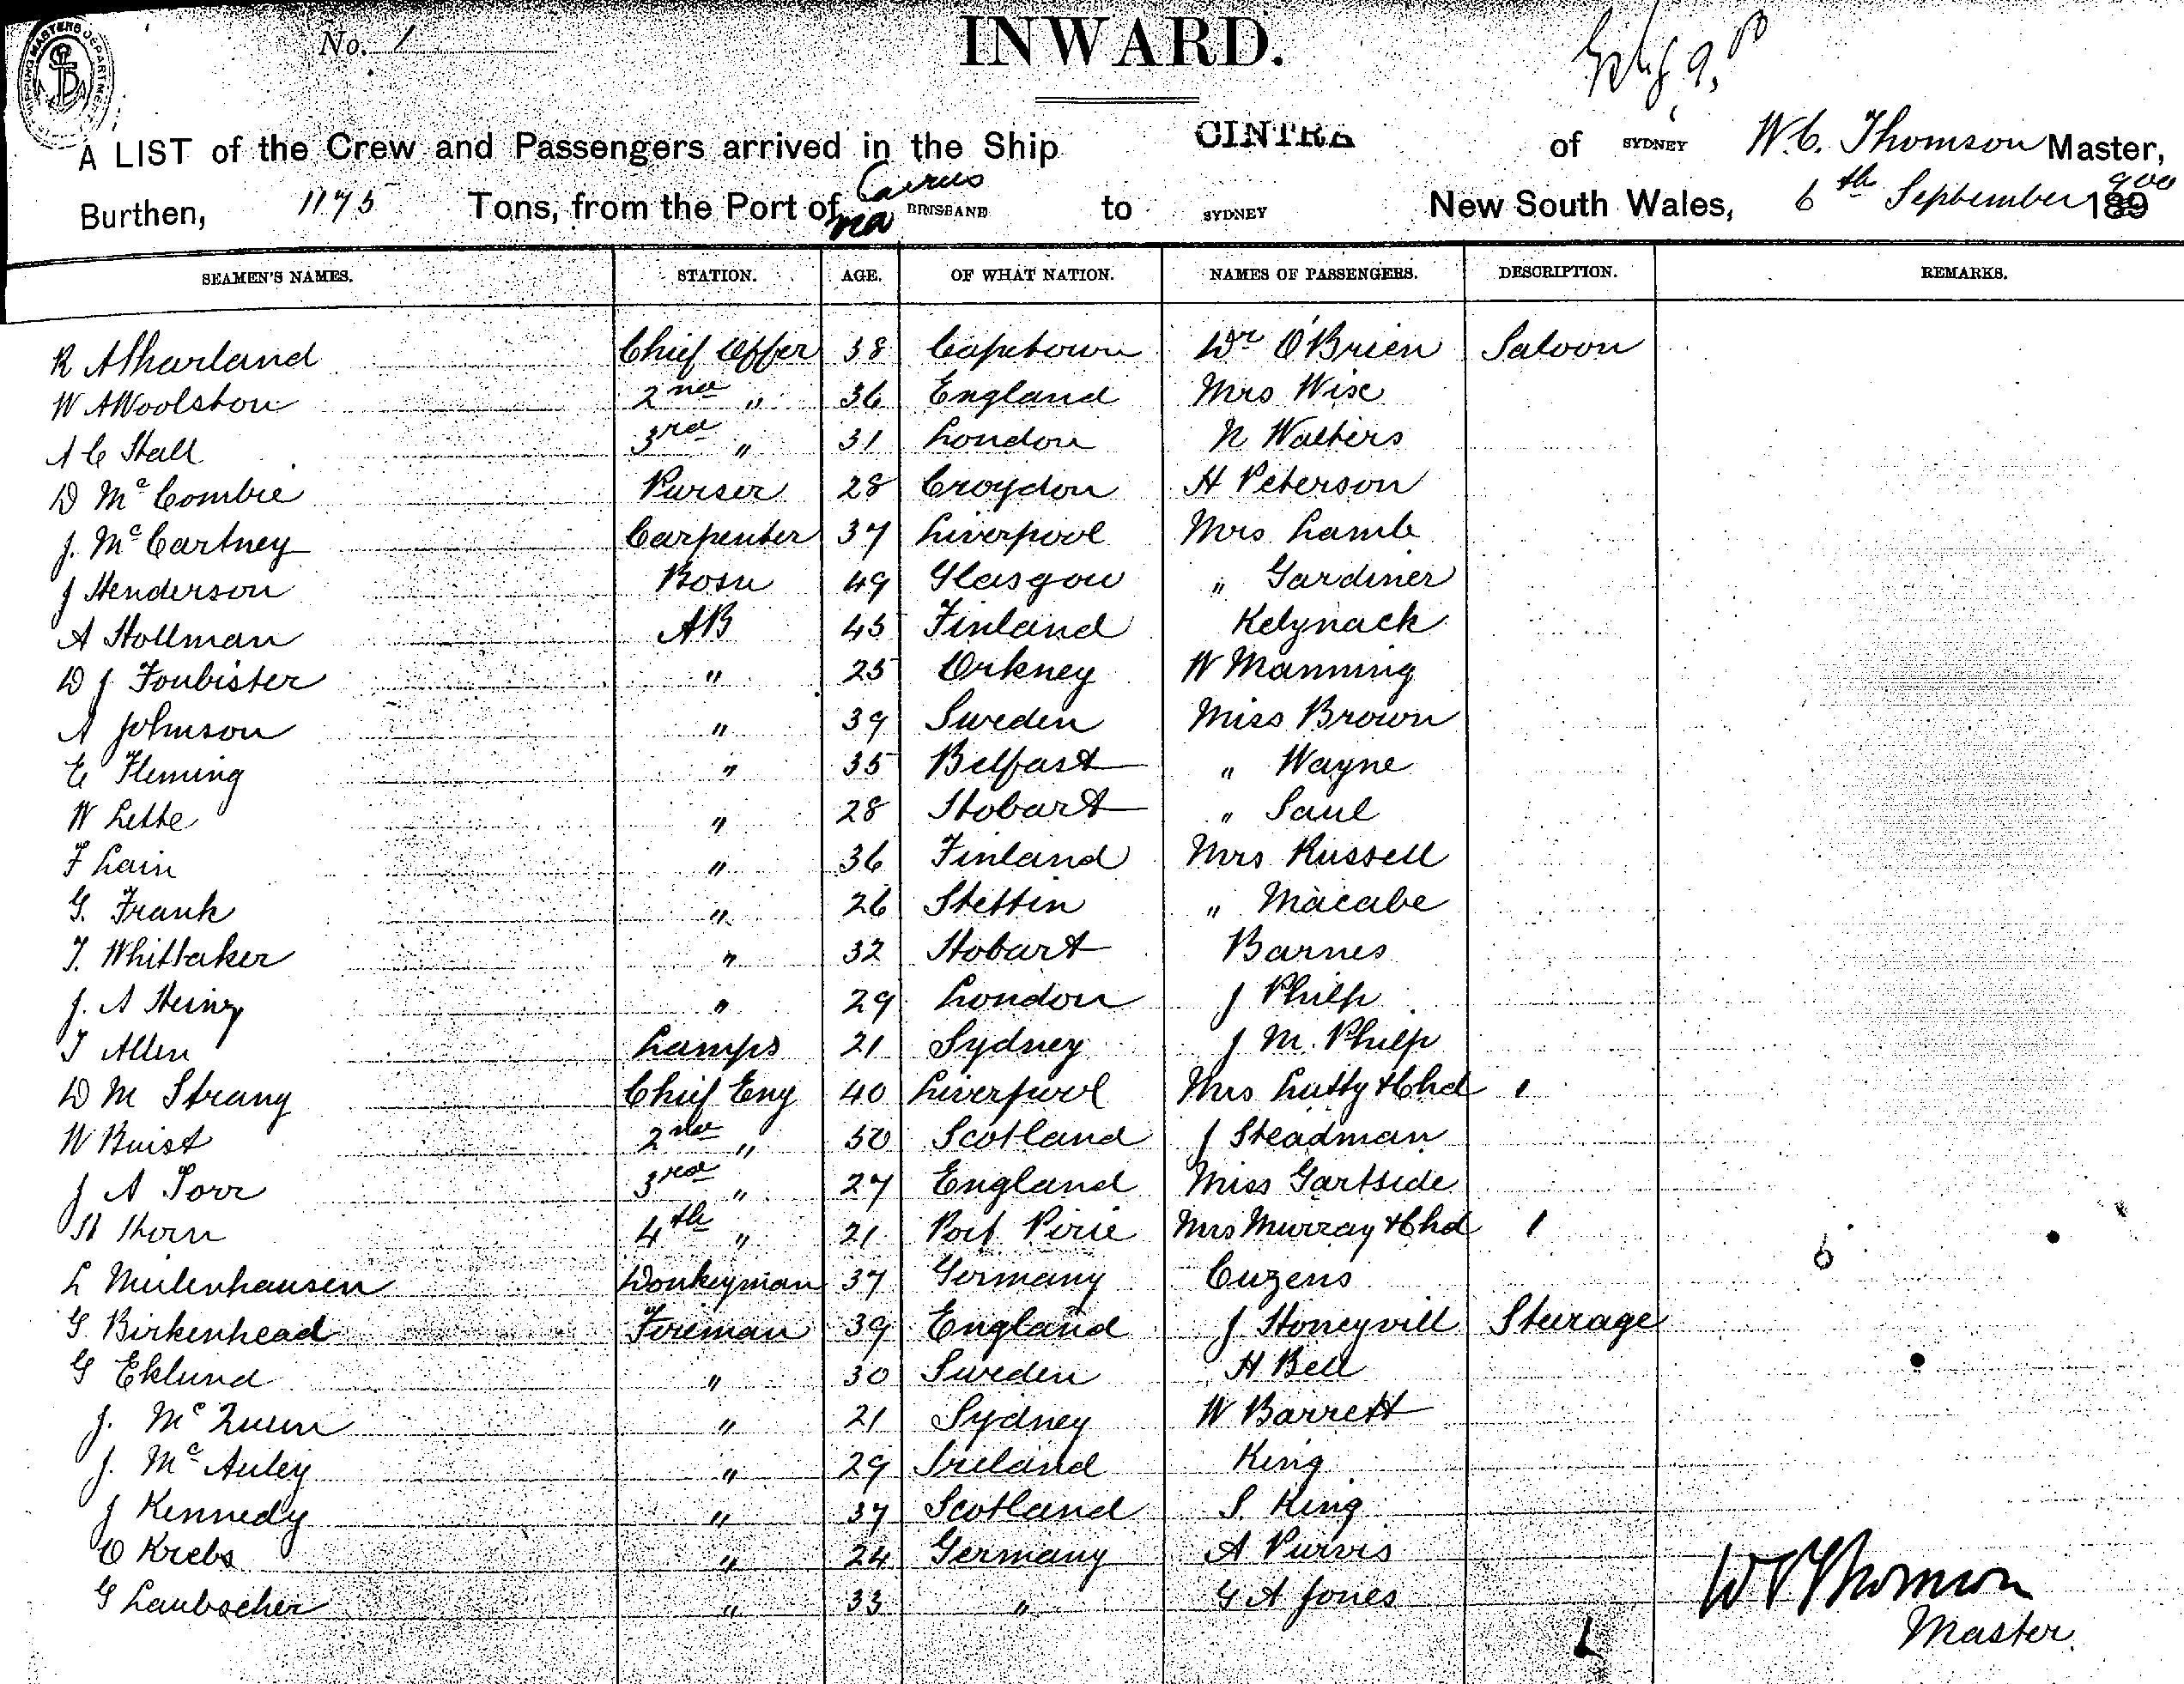 No. 1
INWARD.
A LIST of the Crew and Passengers arrived in the Ship CINTRA of SYDNEY W. C. Thomson Master,
Burthen, 1175 Tons, from the Port of Cairns via BRISBANE to SYDNEY New South Wales, 6th September 1900
SEAMEN'S NAMES. STATION. AGE. OF WHAT NATION. NAMES OF PASSENGERS. DESCRIPTION. REMARKS.
R A Sharland Chief Offcer 38 Capetown Dr O'Brien Saloon
W A Woolston 2nd " 36 England Mrs Wise
A C Hall 3rd " 31 London N Walters
D McCombie Purser 28 Croydon H Peterson
J. McCartney Carpenter 37 Liverpool Mrs Lamb
J Henderson Bosn 49 Glasgow " Gardiner
A Hollman AB 45 Finland Kelynack
D J Foubister " 25 Orkney W Manning
A Johnson " 39 Sweden Miss Brown
E Fleming " 35 Belfast " Wayne
W Lette " 28 Hobart " Saul
F Lain " 36 Finland Mrs Russell
G. Frank " 26 Stettin " Macabe
T. Whittaker " 32 Hobart Barnes
J. A Heinz " 29 London J Philp
T Allen Lamps 21 Sydney J M. Philp
D M Strang Chief Eng 40 Liverpool Mrs Lutty & Chd 1
W Buist 2nd " 50 Scotland J Steadman
J A Torr 3rd " 27 England Miss Gartside
H Thorn 4th " 21 Port Pirie Mrs Murray & Chd 1
L Meulenhausen Donkeyman 37 Germany Cuzens
G. Birkenhead Fireman 39 England J. Honeyvill Steerage
G Eklund " 30 Sweden H Bell
J. McQuinn " 21 Sydney W Barrett
J. McAuley " 29 Ireland King
J Kennedy " 37 Scotland S. King
O Krebs " 24 Germany A Purvis
G Laubscher " 33 " G A Jones
W C Thomson
Master.